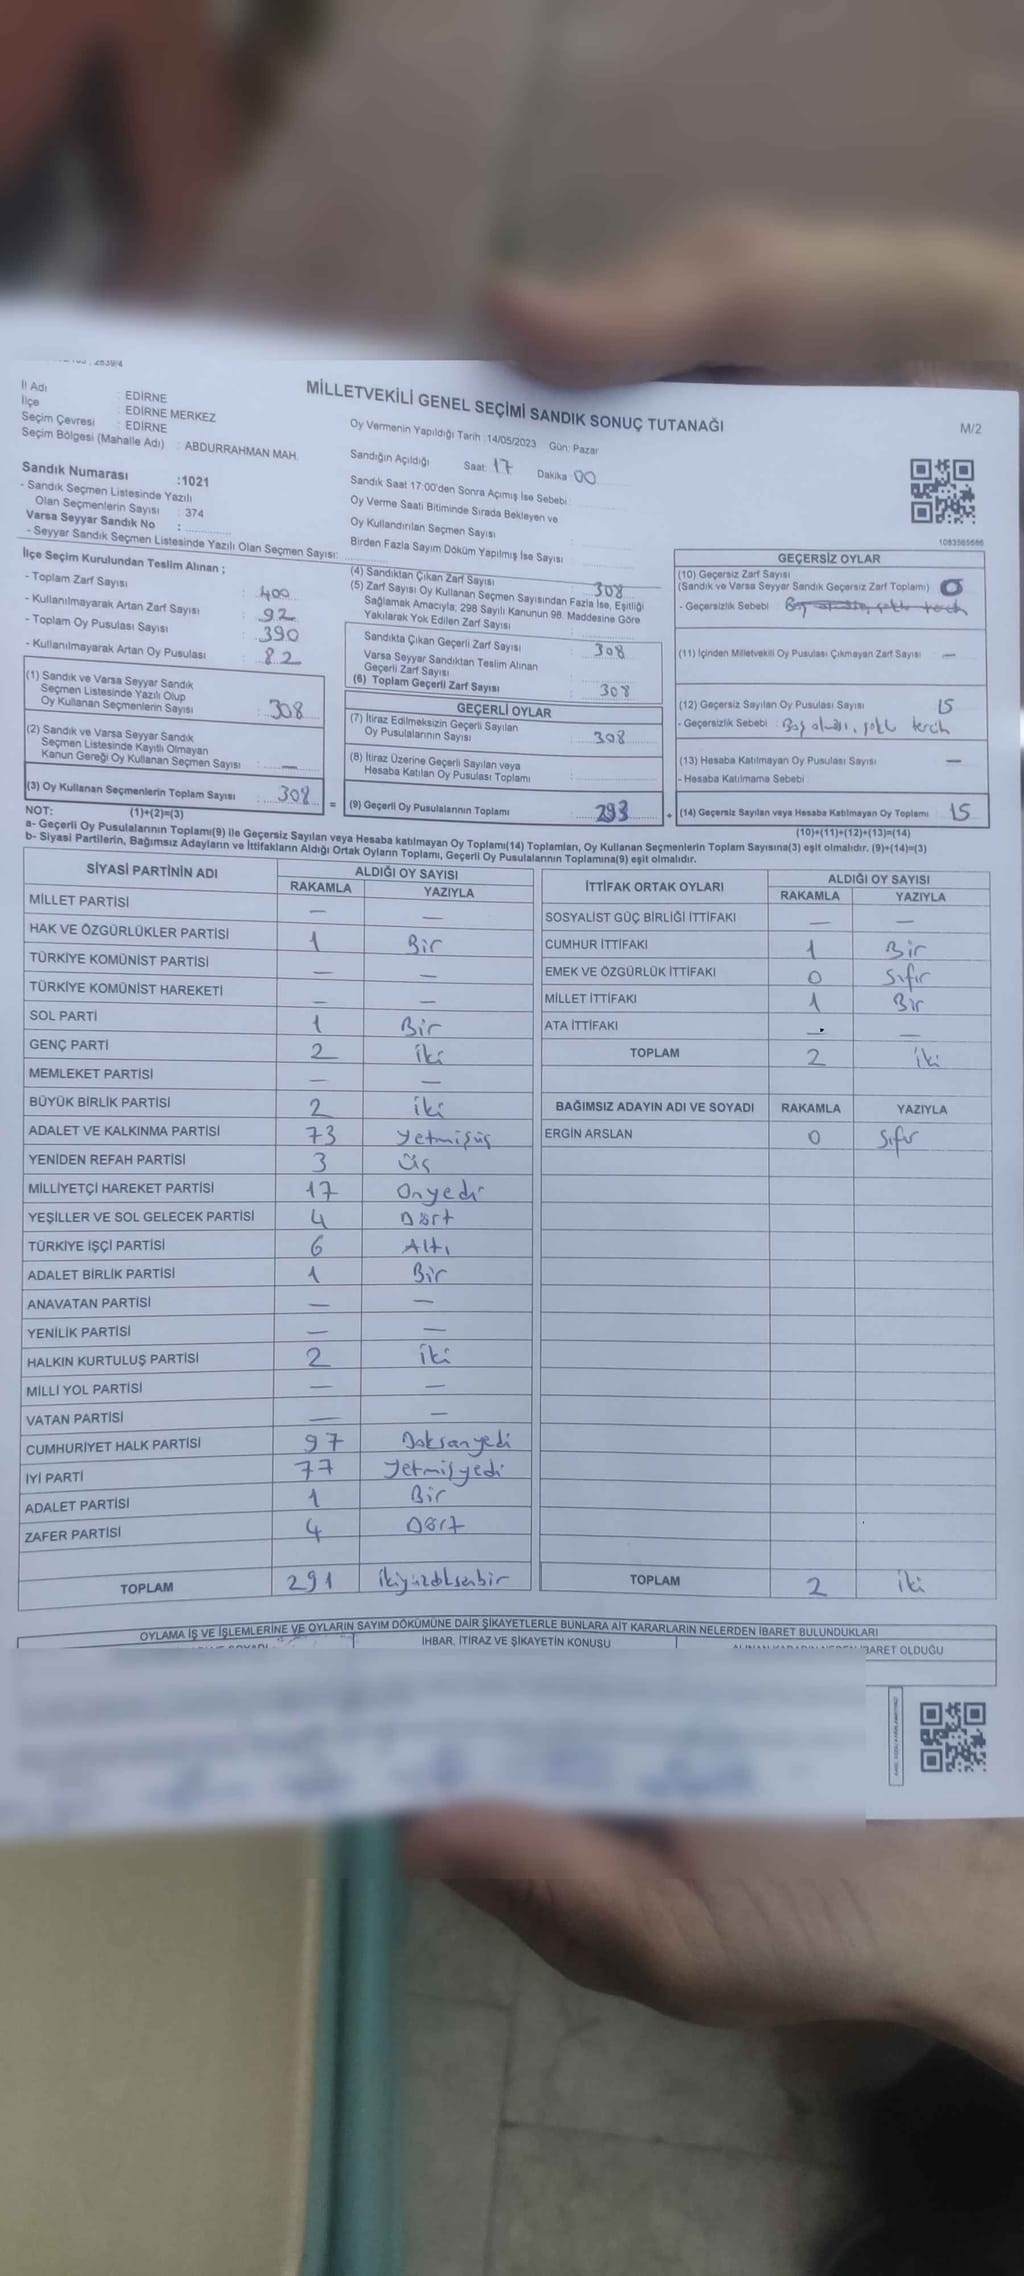 2839/4
MİLLETVEKİLİ GENEL SEÇİMİ SANDIK SONUÇ TUTANAĞI
M/2
İl Adı : EDİRNE
İlçe : EDİRNE MERKEZ
Seçim Çevresi : EDİRNE
Seçim Bölgesi (Mahalle Adı) : ABDURRAHMAN MAH.
Sandık Numarası :1021
- Sandık Seçmen Listesinde Yazılı
Olan Seçmenlerin Sayısı : 374
Varsa Seyyar Sandık No :
- Seyyar Sandık Seçmen Listesinde Yazılı Olan Seçmen Sayısı:
Oy Vermenin Yapıldığı Tarih :14/05/2023 Gün: Pazar
Sandığın Açıldığı Saat: 17 Dakika : 00
Sandık Saat 17:00'den Sonra Açımış İse Sebebi
Oy Verme Saati Bitiminde Sırada Bekleyen ve
Oy Kullandırılan Seçmen Sayısı
Birden Fazla Sayım Döküm Yapılmış İse Sayısı
1083585686
İlçe Seçim Kurulundan Teslim Alınan ;
- Toplam Zarf Sayısı : 400
- Kullanılmayarak Artan Zarf Sayısı : 92
- Toplam Oy Pusulası Sayısı : 390
- Kullanılmayarak Artan Oy Pusulası : 82
(1) Sandık ve Varsa Seyyar Sandık
Seçmen Listesinde Yazılı Olup
Oy Kullanan Seçmenlerin Sayısı : 308
(2) Sandık ve Varsa Seyyar Sandık
Seçmen Listesinde Kayıtlı Olmayan
Kanun Gereği Oy Kullanan Seçmen Sayısı : —
(3) Oy Kullanan Seçmenlerin Toplam Sayısı : 308
(1)+(2)=(3)
(4) Sandıktan Çıkan Zarf Sayısı 308
(5) Zarf Sayısı Oy Kullanan Seçmen Sayısından Fazla İse, Eşitliği
Sağlamak Amacıyla; 298 Sayılı Kanunun 98. Maddesine Göre
Yakılarak Yok Edilen Zarf Sayısı
Sandıkta Çıkan Geçerli Zarf Sayısı : 308
Varsa Seyyar Sandıktan Teslim Alınan
Geçerli Zarf Sayısı
(6) Toplam Geçerli Zarf Sayısı : 308
GEÇERLİ OYLAR
(7) İtiraz Edilmeksizin Geçerli Sayılan
Oy Pusulalarının Sayısı : 308
(8) İtiraz Üzerine Geçerli Sayılan veya
Hesaba Katılan Oy Pusulası Toplamı
= (9) Geçerli Oy Pusulalarının Toplamı : 293
GEÇERSİZ OYLAR
(10) Geçersiz Zarf Sayısı
(Sandık ve Varsa Seyyar Sandık Geçersiz Zarf Toplamı) : 0
- Geçersizlik Sebebi :
(11) İçinden Milletvekili Oy Pusulası Çıkmayan Zarf Sayısı : —
(12) Geçersiz Sayılan Oy Pusulası Sayısı : 15
- Geçersizlik Sebebi : Boş olması, çoklu tercih
(13) Hesaba Katılmayan Oy Pusulası Sayısı : —
- Hesaba Katılmama Sebebi :
+ (14) Geçersiz Sayılan veya Hesaba Katılmayan Oy Toplamı : 15
(10)+(11)+(12)+(13)=(14)
NOT:
a- Geçerli Oy Pusulalarının Toplamı(9) ile Geçersiz Sayılan veya Hesaba katılmayan Oy Toplamı(14) Toplamları, Oy Kullanan Seçmenlerin Toplam Sayısına(3) eşit olmalıdır. (9)+(14)=(3)
b- Siyasi Partilerin, Bağımsız Adayların ve İttifakların Aldığı Ortak Oyların Toplamı, Geçerli Oy Pusulalarının Toplamına(9) eşit olmalıdır.
SİYASİ PARTİNİN ADI ALDIĞI OY SAYISI
RAKAMLA YAZIYLA
MİLLET PARTİSİ — —
HAK VE ÖZGÜRLÜKLER PARTİSİ 1 Bir
TÜRKİYE KOMÜNİST PARTİSİ — —
TÜRKİYE KOMÜNİST HAREKETİ — —
SOL PARTİ 1 Bir
GENÇ PARTİ 2 İki
MEMLEKET PARTİSİ — —
BÜYÜK BİRLİK PARTİSİ 2 İki
ADALET VE KALKINMA PARTİSİ 73 Yetmişüç
YENİDEN REFAH PARTİSİ 3 Üç
MİLLİYETÇİ HAREKET PARTİSİ 17 Onyedi
YEŞİLLER VE SOL GELECEK PARTİSİ 4 Dört
TÜRKİYE İŞÇİ PARTİSİ 6 Altı
ADALET BİRLİK PARTİSİ 1 Bir
ANAVATAN PARTİSİ — —
YENİLİK PARTİSİ — —
HALKIN KURTULUŞ PARTİSİ 2 İki
MİLLİ YOL PARTİSİ — —
VATAN PARTİSİ — —
CUMHURİYET HALK PARTİSİ 97 Doksanyedi
İYİ PARTİ 77 Yetmişyedi
ADALET PARTİSİ 1 Bir
ZAFER PARTİSİ 4 Dört
TOPLAM 291 İkiyüzdoksanbir
İTTİFAK ORTAK OYLARI ALDIĞI OY SAYISI
RAKAMLA YAZIYLA
SOSYALİST GÜÇ BİRLİĞİ İTTİFAKI — —
CUMHUR İTTİFAKI 1 Bir
EMEK VE ÖZGÜRLÜK İTTİFAKI 0 Sıfır
MİLLET İTTİFAKI 1 Bir
ATA İTTİFAKI — —
TOPLAM 2 İki
BAĞIMSIZ ADAYIN ADI VE SOYADI RAKAMLA YAZIYLA
ERGİN ARSLAN 0 Sıfır
TOPLAM 2 İki
OYLAMA İŞ VE İŞLEMLERİNE VE OYLARIN SAYIM DÖKÜMÜNE DAİR ŞİKAYETLERLE BUNLARA AİT KARARLARIN NELERDEN İBARET BULUNDUKLARI
İHBAR, İTİRAZ VE ŞİKAYETİN KONUSU
İBARET OLDUĞU